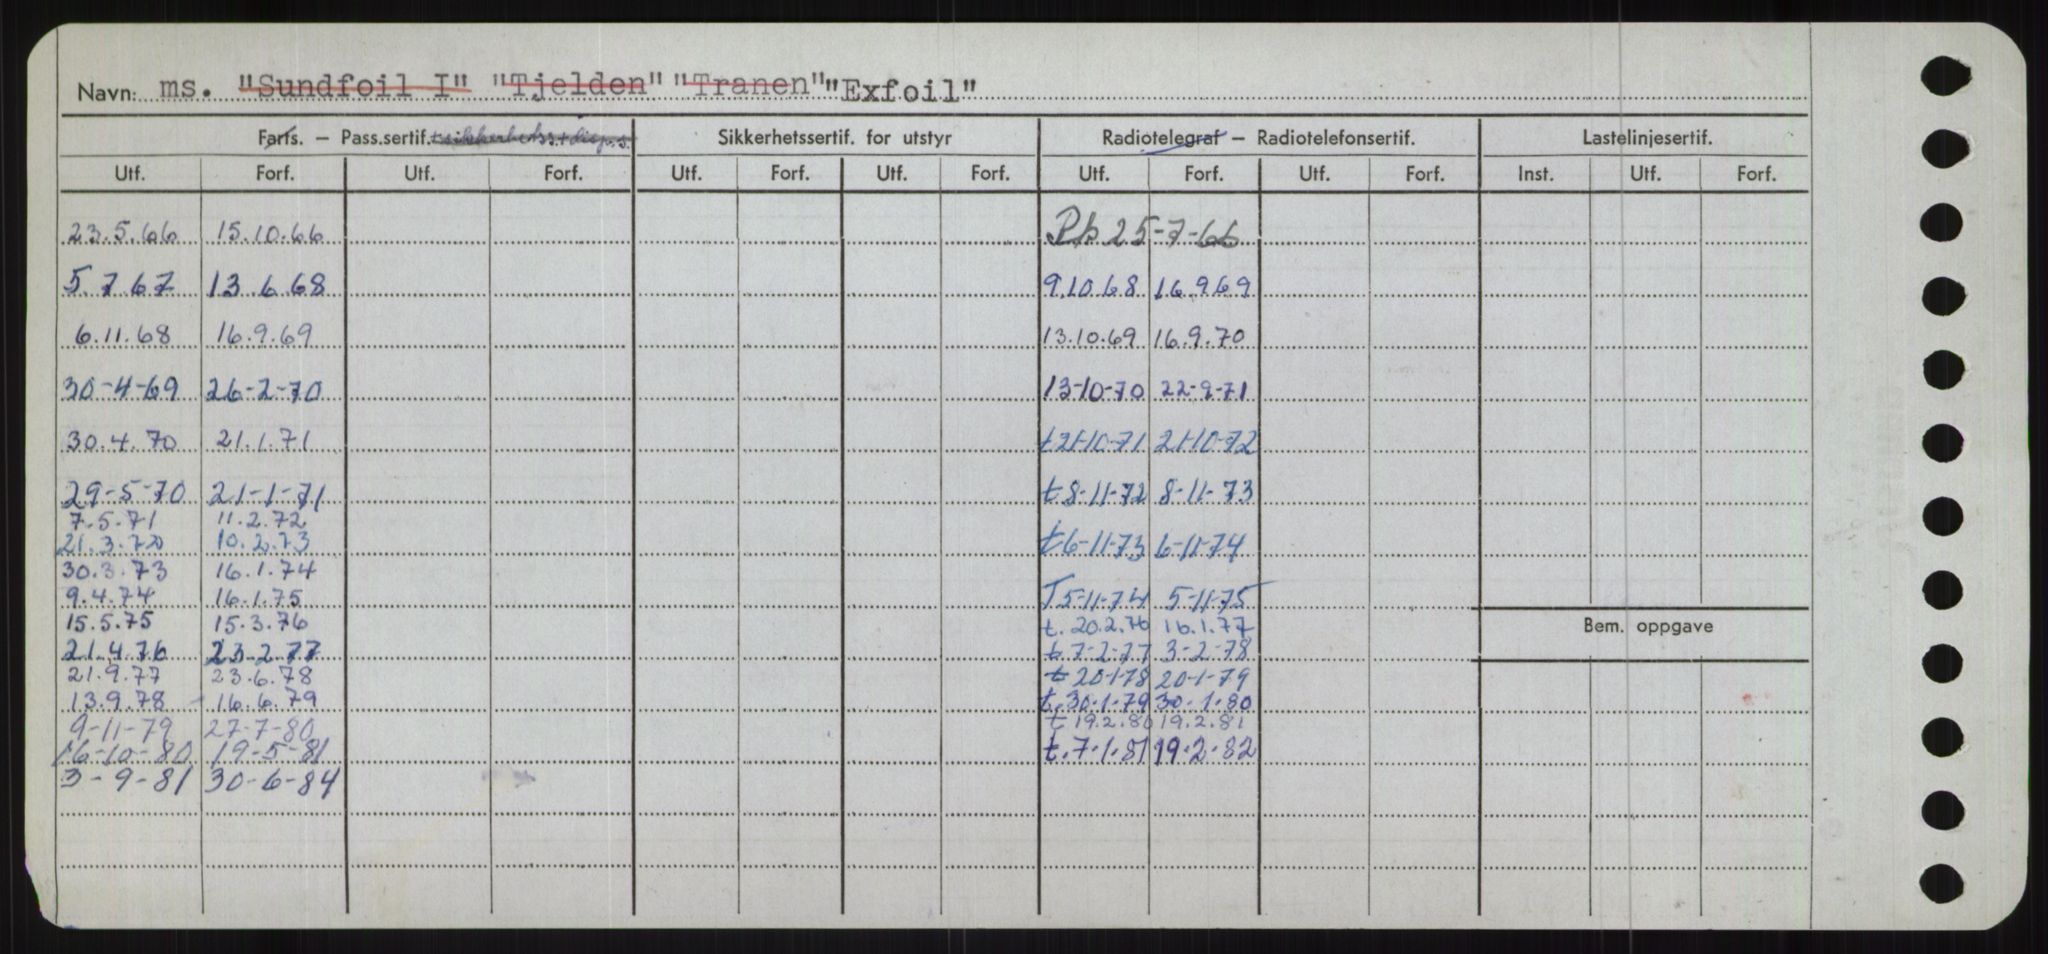 Navn: ms. "Sundfoil I" "Tjelden" "Tranen" "Exfoil"
Farts. – Pass.sertif. + sikkerhetss. + disp.s. Sikkerhetssertif. for utstyr Radiotelegraf – Radiotelefonsertif. Lastelinjesertif.
Utf. Forf. Utf. Forf. Utf. Forf. Utf. Forf. Utf. Forf. Utf. Forf. Inst. Utf. Forf.
23.5.66 15.10.66 25-7-66
5.7.67 13.6.68 9.10.68 16.9.69
6.11.68 16.9.69 13.10.69 16.9.70
30-4-69 26-2-70 13-10-70 22-9-71
30.4.70 21.1.71 t 21-10-71 21-10-72
29-5-70 21-1-71 t 8-11-72 8-11-73
7.5.71 11.2.72
21.3.72 10.2.73 t 6-11-73 6-11-74
30.3.73 16.1.74
9.4.74 16.1.75 T 5-11-74 5-11-75
15.5.75 15.3.76 t. 20.2.76 16.1.77
Bem. oppgave
21.4.76 23.2.77 t 7-2-77 3-2-78
21.9.77 23.6.78 t 20-1-78 20-1-79
13.9.78 16.6.79 t. 30.1.79 30.1.80
9-11-79 27-7-80 t 19.2.80 19.2.81
16-10-80 19-5-81 t. 7.1.81 19.2.82
3-9-81 30-6-84